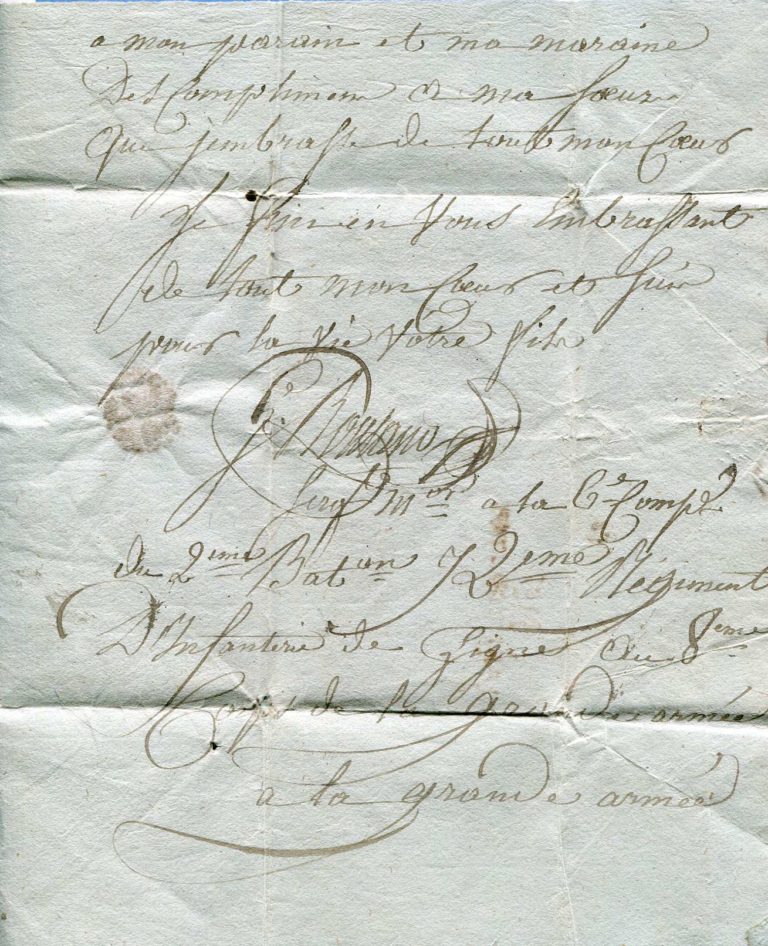 a mon parain et ma maraine
Des Complimens a ma Sœur
que jembrasse de tout mon Cœur
Je finie en Vous Embrassant
de tout mon Cœur et suis
pour la Vie Votre fils
Sergt Mor a la 6e Compe
du 2eme Baton 72eme Régiment
D'Infanterie de Ligne au 8eme
Corps de la grande armée
a la grande armée